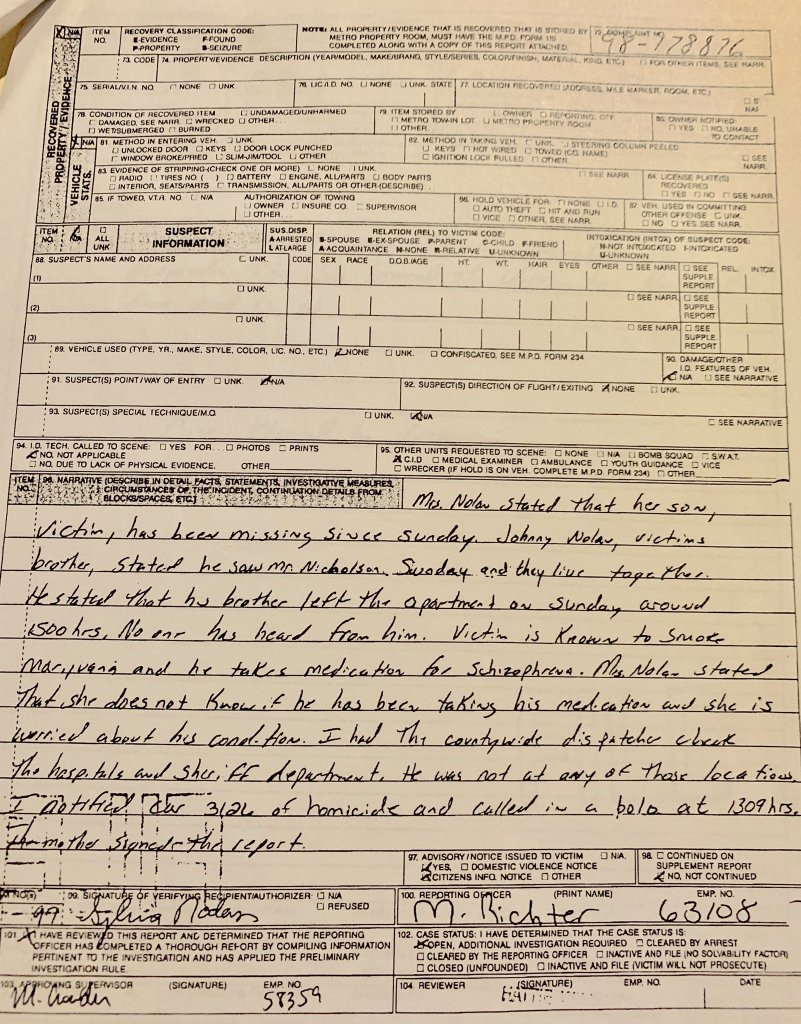 X N/A ITEM NO. RECOVERY CLASSIFICATION CODE: NOTE: ALL PROPERTY/EVIDENCE THAT IS RECOVERED THAT IS STORED BY 72. COMPLAINT NO.
E-EVIDENCE F-FOUND METRO PROPERTY ROOM, MUST HAVE THE M.P.D. FORM 116
P-PROPERTY S-SEIZURE COMPLETED ALONG WITH A COPY OF THIS REPORT ATTACHED. 98-178876
73. CODE 74. PROPERTY/EVIDENCE DESCRIPTION (YEAR/MODEL, MAKE/BRAND, STYLE/SERIES, COLOR/FINISH, MATERIAL, KIND, ETC.) ☐ FOR OTHER ITEMS, SEE NARR.
RECOVERED PROPERTY/EVIDENCE
75. SERIAL/V.I.N. NO. ☐ NONE ☐ UNK. 76. LIC./I.D. NO. ☐ NONE ☐ UNK. STATE 77. LOCATION RECOVERED (ADDRESS, MILE MARKER, ROOM, ETC.)
78. CONDITION OF RECOVERED ITEM ☐ UNDAMAGED/UNHARMED 79. ITEM STORED BY ☐ OWNER ☐ REPORTING OFF. 80. OWNER NOTIFIED:
☐ DAMAGED, SEE NARR. ☐ WRECKED ☐ OTHER ☐ METRO TOW-IN LOT ☐ METRO PROPERTY ROOM ☐ YES ☐ NO, UNABLE
☐ WET/SUBMERGED ☐ BURNED ☐ OTHER TO CONTACT
VEHICLE STATS.
X N/A 81. METHOD IN ENTERING VEH. ☐ UNK. 82. METHOD IN TAKING VEH. ☐ UNK. ☐ STEERING COLUMN PEELED
☐ UNLOCKED DOOR ☐ KEYS ☐ DOOR LOCK PUNCHED ☐ KEYS ☐ HOT WIRED ☐ TOWED (CO. NAME)
☐ WINDOW BROKE/PRIED ☐ SLIM-JIM/TOOL ☐ OTHER ☐ IGNITION LOCK PULLED ☐ OTHER ☐ SEE NARR.
83. EVIDENCE OF STRIPPING (CHECK ONE OR MORE) ☐ NONE ☐ UNK. ☐ SEE NARR. 84. LICENSE PLATE(S)
☐ RADIO ☐ TIRES NO ( ) ☐ BATTERY ☐ ENGINE, ALL/PARTS ☐ BODY PARTS RECOVERED
☐ INTERIOR, SEATS/PARTS ☐ TRANSMISSION, ALL/PARTS OR OTHER (DESCRIBE) ☐ YES ☐ NO ☐ SEE NARR.
85. IF TOWED, V.T.R. NO. ☐ N/A AUTHORIZATION OF TOWING 86. HOLD VEHICLE FOR: ☐ NONE ☐ I.D. 87. VEH. USED IN COMMITTING
☐ OWNER ☐ INSURE CO. ☐ SUPERVISOR ☐ AUTO THEFT ☐ HIT AND RUN OTHER OFFENSE ☐ UNK.
☐ OTHER ☐ VICE ☐ OTHER, SEE NARR. ☐ NO ☐ YES SEE NARR.
ITEM NO. N/A ☐ ALL UNK SUSPECT INFORMATION SUS. DISP. A-ARRESTED L-AT LARGE RELATION (REL) TO VICTIM CODE: INTOXICATION (INTOX) OF SUSPECT CODE:
S-SPOUSE E-EX-SPOUSE P-PARENT C-CHILD F-FRIEND N-NOT INTOXICATED I-INTOXICATED
A ACQUAINTANCE N-NONE R-RELATIVE U-UNKNOWN U-UNKNOWN
88. SUSPECT'S NAME AND ADDRESS ☐ UNK. CODE SEX RACE D.O.B./AGE HT. WT. HAIR EYES OTHER ☐ SEE NARR. ☐ SEE SUPPLE REPORT REL. INTOX
(1)
☐ UNK. ☐ SEE NARR. ☐ SEE SUPPLE REPORT
(2)
☐ UNK. ☐ SEE NARR. ☐ SEE SUPPLE. REPORT
(3)
89. VEHICLE USED (TYPE, YR., MAKE, STYLE, COLOR, LIC. NO., ETC.) ☑ NONE ☐ UNK. ☐ CONFISCATED, SEE M.P.D. FORM 234 90. DAMAGE/OTHER
I.D. FEATURES OF VEH.
☑ N/A ☐ SEE NARRATIVE
91. SUSPECT(S) POINT/WAY OF ENTRY ☐ UNK. ☑ N/A 92. SUSPECT(S) DIRECTION OF FLIGHT/EXITING ☑ NONE ☐ UNK.
93. SUSPECT(S) SPECIAL TECHNIQUE/M.O. ☐ UNK. ☑ N/A ☐ SEE NARRATIVE
94. I.D. TECH. CALLED TO SCENE: ☐ YES FOR ☐ PHOTOS ☐ PRINTS 95. OTHER UNITS REQUESTED TO SCENE: ☐ NONE ☐ N/A ☐ BOMB SQUAD ☐ S.W.A.T.
☑ NO, NOT APPLICABLE ☑ C.I.D ☐ MEDICAL EXAMINER ☐ AMBULANCE ☐ YOUTH GUIDANCE ☐ VICE
☐ NO, DUE TO LACK OF PHYSICAL EVIDENCE. OTHER ☐ WRECKER (IF HOLD IS ON VEH. COMPLETE M.P.D. FORM 234) ☐ OTHER
ITEM NO. 96. NARRATIVE (DESCRIBE IN DETAIL FACTS, STATEMENTS, INVESTIGATIVE MEASURES, CIRCUMSTANCES OF THE INCIDENT, CONTINUATION DETAILS FROM BLOCKS/SPACES, ETC.)
Mrs. Nolan stated that her son,
victim, has been missing since Sunday. Johnny Nolan, victims
brother, stated he saw Mr. Nicholson Sunday and they live together.
He stated that his brother left the apartment on Sunday around
1500hrs. No one has heard from him. Victim is Known to Smoke
Marijuana and he takes medication for Schizophrena. Mrs. Nolan stated
that she does not Know if he has been taking his medication and she is
worried about his condition. I had the countywide dispatcher check
the hospitals and sheriff department. He was not at any of those locations.
I notified car 3126 of homicide and called in a bolo at 1309hrs.
the mother signed the report.
97. ADVISORY/NOTICE ISSUED TO VICTIM ☐ N/A. 98. ☐ CONTINUED ON
☑ YES, ☐ DOMESTIC VIOLENCE NOTICE SUPPLEMENT REPORT
☑ CITIZENS INFO. NOTICE ☐ OTHER ☑ NO, NOT CONTINUED
99. SIGNATURE OF VERIFYING RECIPIENT/AUTHORIZER ☐ N/A ☐ REFUSED 100. REPORTING OFFICER (PRINT NAME) EMP. NO.
-99 M. Richter 63108
101. X I HAVE REVIEWED THIS REPORT AND DETERMINED THAT THE REPORTING 102. CASE STATUS: I HAVE DETERMINED THAT THE CASE STATUS IS:
OFFICER HAS COMPLETED A THOROUGH REPORT BY COMPILING INFORMATION ☑ OPEN, ADDITIONAL INVESTIGATION REQUIRED ☐ CLEARED BY ARREST
PERTINENT TO THE INVESTIGATION AND HAS APPLIED THE PRELIMINARY ☐ CLEARED BY THE REPORTING OFFICER ☐ INACTIVE AND FILE (NO SOLVABILITY FACTOR)
INVESTIGATION RULE. ☐ CLOSED (UNFOUNDED) ☐ INACTIVE AND FILE (VICTIM WILL NOT PROSECUTE)
103. APPROVING SUPERVISOR (SIGNATURE) EMP. NO 104. REVIEWER (SIGNATURE) EMP. NO. DATE
58359